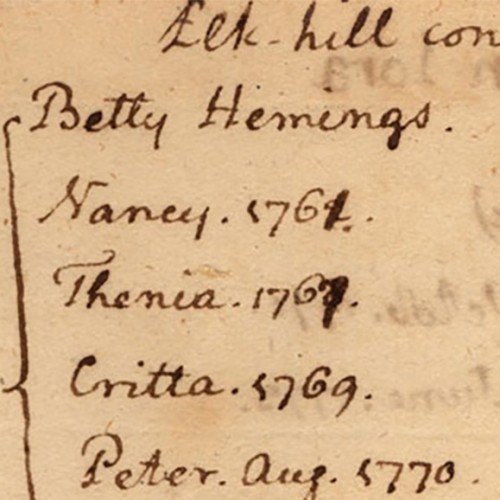 Elk-hill con
Betty Hemings.
Nancy. 1761.
Thenia. 1767.
Critta. 1769.
Peter. Aug. 1770.